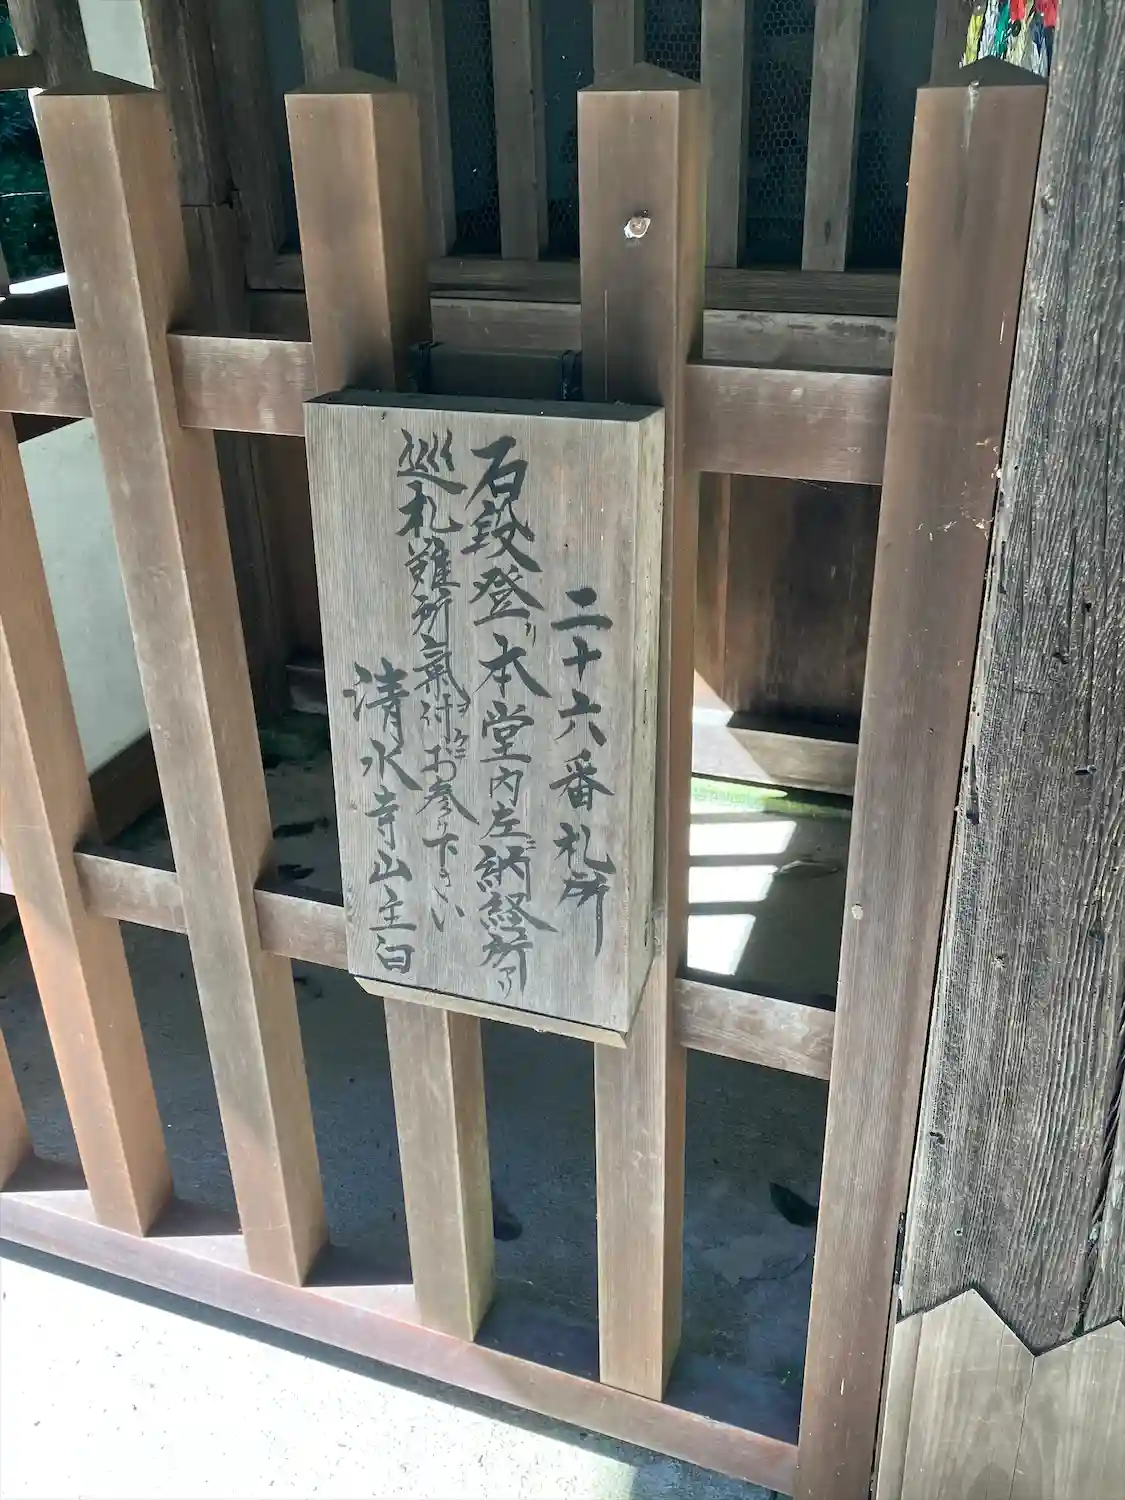 二十六番札所
石段登リ本堂内左ニ納経所アリ
巡礼難所氣ヲ付ケテお参り下さい
清水寺山主白